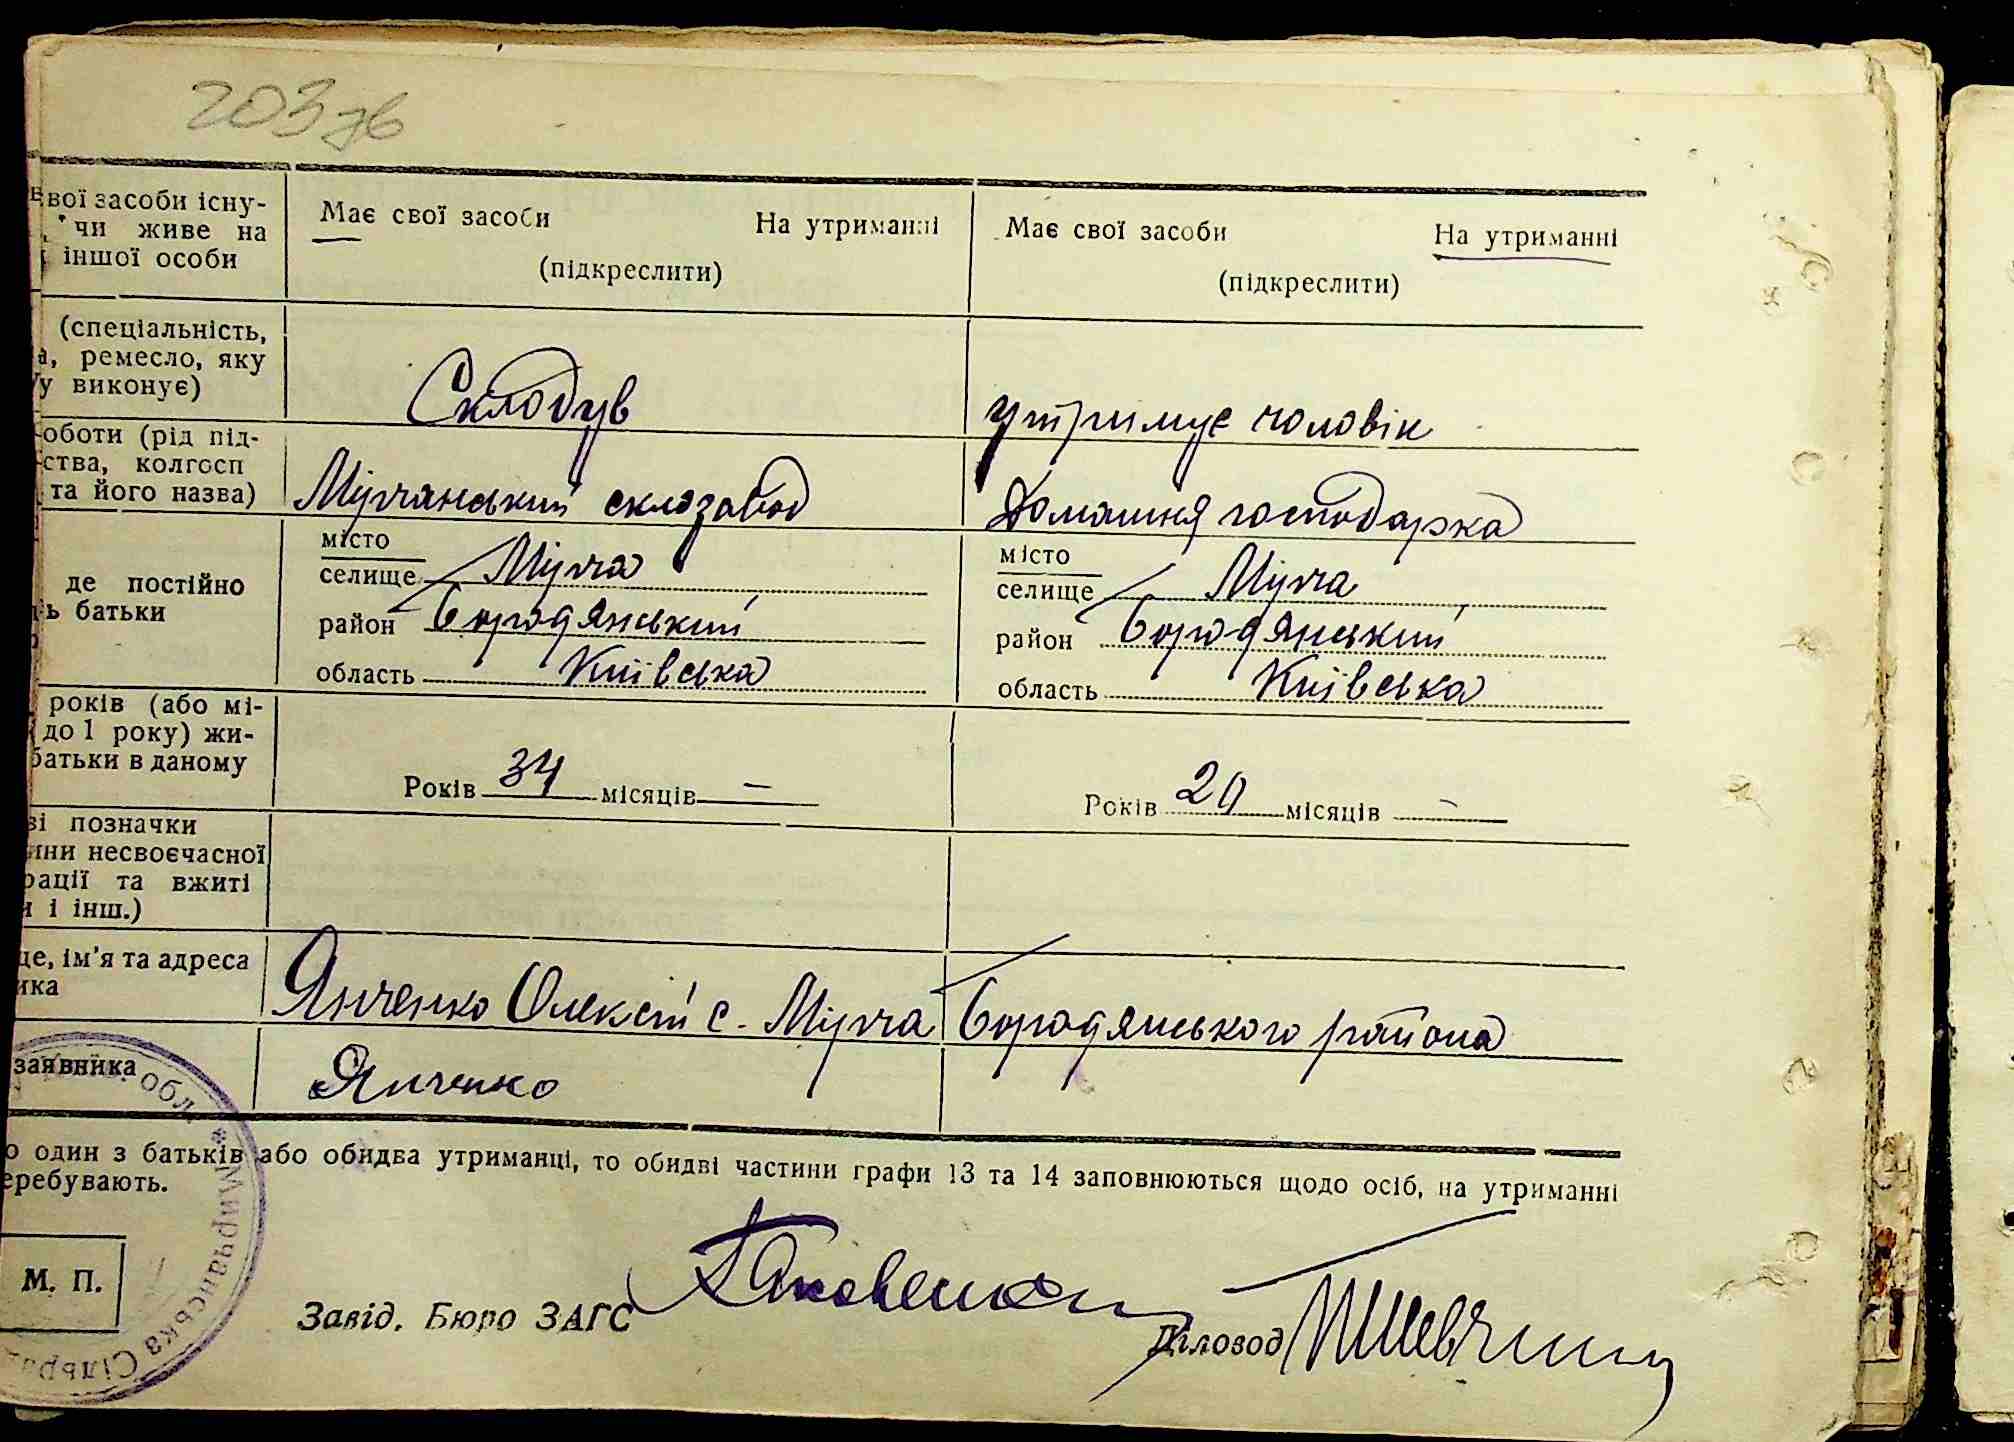 203 зв
вої засоби існу-
чи живе на
іншої особи
Має свої засоби На утриманні
(підкреслити)
Має свої засоби На утриманні
(підкреслити)
(спеціальність,
ремесло, яку
виконує)
Склодув
утримує чоловік
оботи (рід під-
ства, колгосп
та його назва)
Мірчанський склозавод
Домашня господарка
де постійно
батьки
місто
селище Мірча
район Бородянський
область Київська
місто
селище Мірча
район Бородянський
область Київська
років (або мі-
до 1 року) жи-
батьки в даному
Років 34 місяців —
Років 29 місяців —
позначки
ини несвоєчасної
рації та вжиті
і інш.)
це, ім'я та адреса
ика
Янченко Олексій с. Мірча Бородянського района
заявника
Янченко
о один з батьків або обидва утриманці, то обидві частини графи 13 та 14 заповнюються щодо осіб, на утриманні
еребувають.
обл. * Мирчанська Сільра
М. П.
Завід. Бюро ЗАГС
Діловод